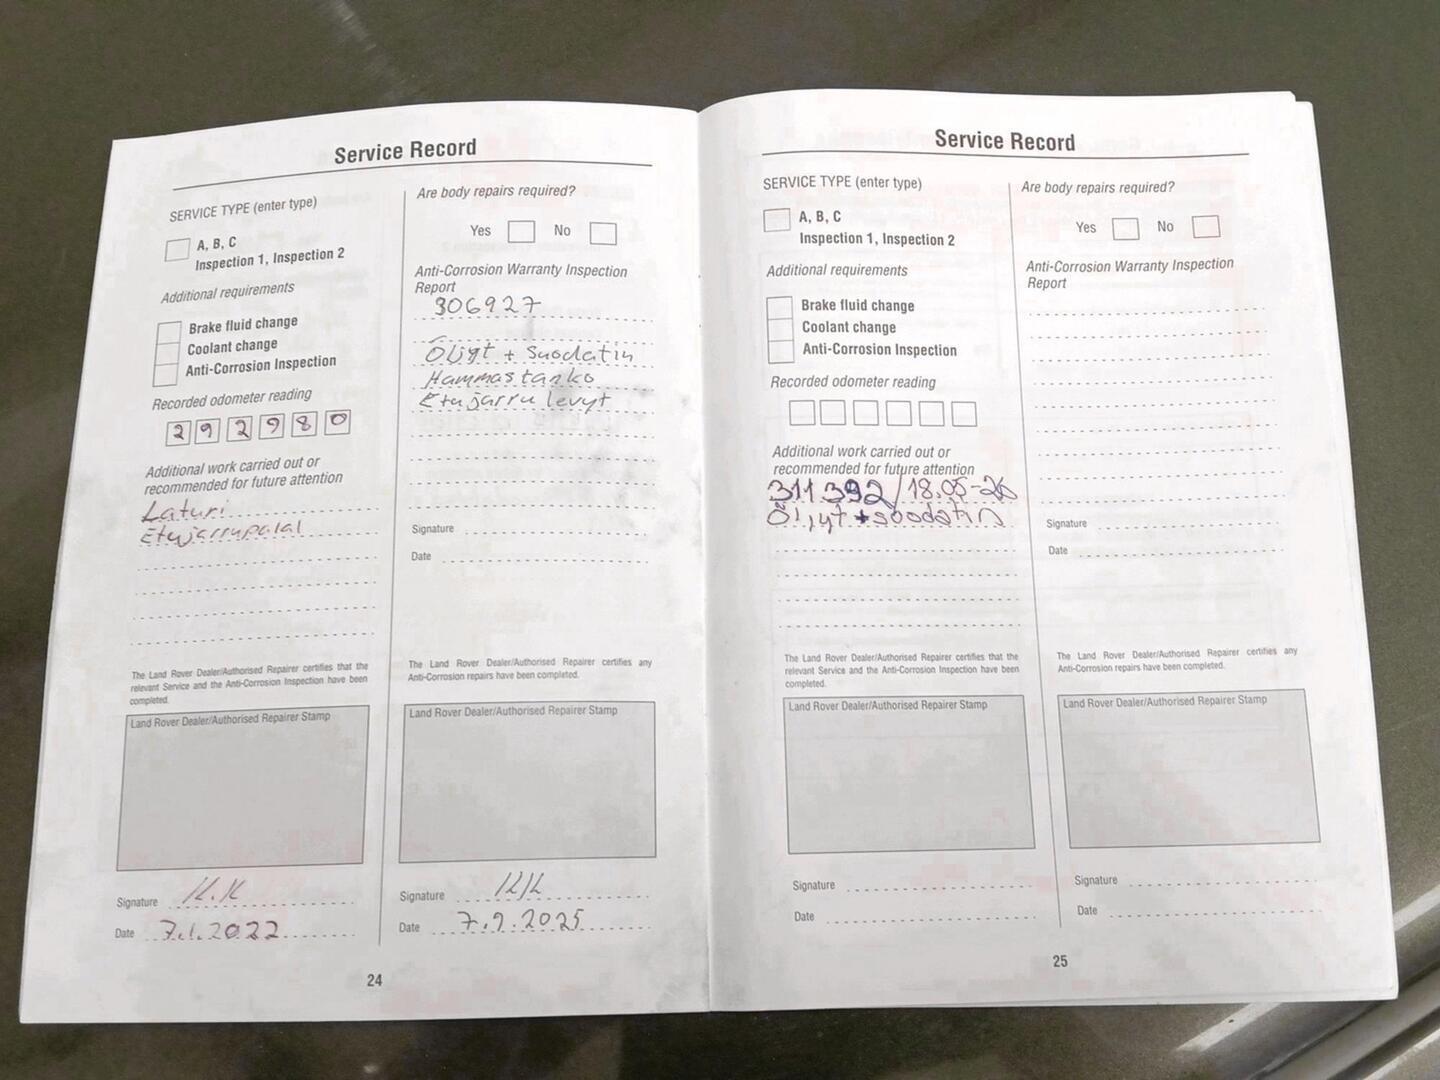 Service Record
SERVICE TYPE (enter type)
A, B, C
Inspection 1, Inspection 2
Additional requirements
Brake fluid change
Coolant change
Anti-Corrosion Inspection
Recorded odometer reading
292980
Additional work carried out or
recommended for future attention
Laturi
Etujarrupalat
The Land Rover Dealer/Authorised Repairer certifies that the
relevant Service and the Anti-Corrosion Inspection have been
completed.
Land Rover Dealer/Authorised Repairer Stamp
Signature K.K
Date 7.1.2022
Are body repairs required?
Yes No
Anti-Corrosion Warranty Inspection
Report
306927
Öljyt + Suodatin
Hammastanko
Etujarru levyt
Signature
Date
The Land Rover Dealer/Authorised Repairer certifies any
Anti-Corrosion repairs have been completed.
Land Rover Dealer/Authorised Repairer Stamp
Signature KK
Date 7.9.2025
24
Service Record
SERVICE TYPE (enter type)
A, B, C
Inspection 1, Inspection 2
Additional requirements
Brake fluid change
Coolant change
Anti-Corrosion Inspection
Recorded odometer reading
Additional work carried out or
recommended for future attention
311392/18.05-26
Öljyt + suodatin
The Land Rover Dealer/Authorised Repairer certifies that the
relevant Service and the Anti-Corrosion Inspection have been
completed.
Land Rover Dealer/Authorised Repairer Stamp
Signature
Date
Are body repairs required?
Yes No
Anti-Corrosion Warranty Inspection
Report
Signature
Date
The Land Rover Dealer/Authorised Repairer certifies any
Anti-Corrosion repairs have been completed.
Land Rover Dealer/Authorised Repairer Stamp
Signature
Date
25